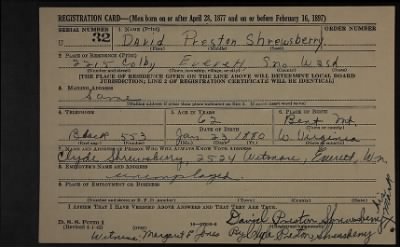 REGISTRATION CARD—(Men born on or after April 28, 1877 and on or before February 16, 1897)
SERIAL NUMBER 1. NAME (Print) ORDER NUMBER
U 32 David Preston Shrewsberry
(First) (Middle) (Last)
2. PLACE OF RESIDENCE (Print)
2215 Colby Everett Sno Wash
(Number and street) (Town, township, village, or city) (County) (State)
[THE PLACE OF RESIDENCE GIVEN ON THE LINE ABOVE WILL DETERMINE LOCAL BOARD
JURISDICTION; LINE 2 OF REGISTRATION CERTIFICATE WILL BE IDENTICAL]
3. MAILING ADDRESS
Same
[Mailing address if other than place indicated on line 2. If same insert word same]
4. TELEPHONE 5. AGE IN YEARS 6. PLACE OF BIRTH
62 Bent Mt.
DATE OF BIRTH
Black 553 Jan 23 1880 W. Virginia
(Exchange) (Number) (Mo.) (Day) (Yr.) (State or country)
7. NAME AND ADDRESS OF PERSON WHO WILL ALWAYS KNOW YOUR ADDRESS
Clyde Shrewsberry, 2524 Wetmore, Everett, Wn.
8. EMPLOYER'S NAME AND ADDRESS
unemployed
9. PLACE OF EMPLOYMENT OR BUSINESS
(Number and street or R. F. D. number) (Town) (County) (State)
I AFFIRM THAT I HAVE VERIFIED ABOVE ANSWERS AND THAT THEY ARE TRUE.
D. S. S. Form 1
(Revised 4-1-42) David Preston Shrewsberry
Witness: Margaret F. Jones